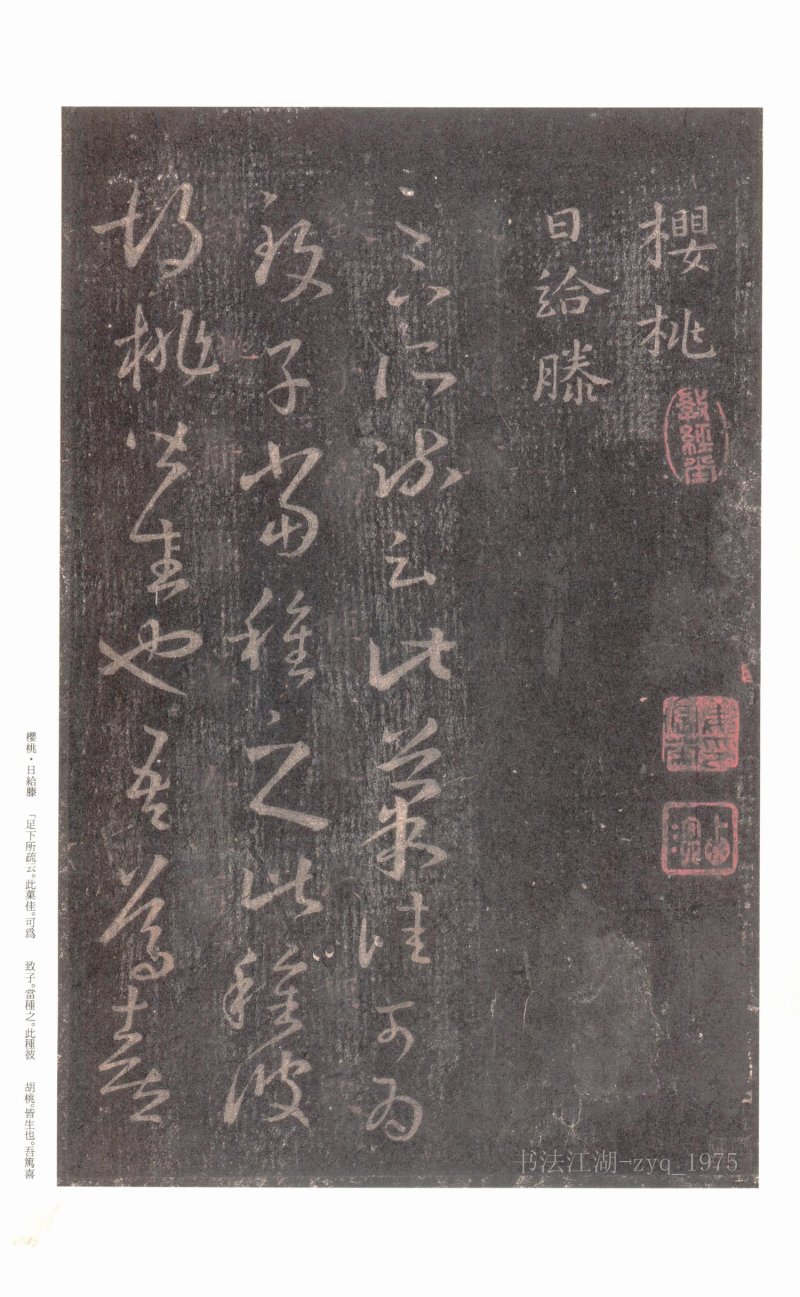 櫻桃
日給滕
足下所疏云此菓佳可為
致子當種之此種彼
胡桃皆生也吾篤喜
敦經堂
櫻桃・日給滕 「足下所疏云。此菓佳。可爲 致子。當種之。此種彼 胡桃。皆生也。吾篤喜
书法江湖-zyq_1975